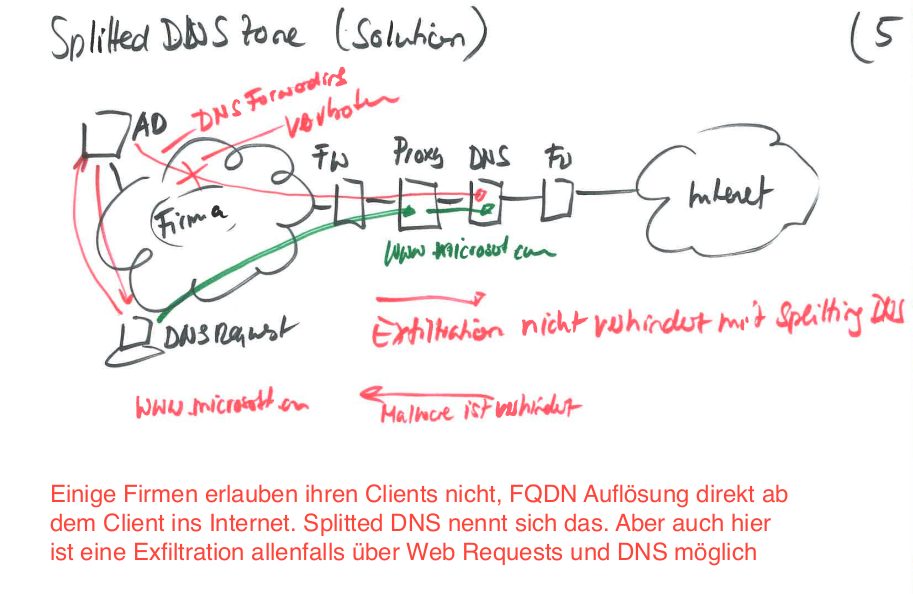 Splitted DNS Zone (Solution)
(5
DNS Forwarding
verboten
AD
FW
Proxy
DNS
FW
Internet
Firma
www.microsoft.com
DNS Request
Exfiltration nicht verhindert mit Splitting DNS
www.microsoft.com
Malware ist verhindert
Einige Firmen erlauben ihren Clients nicht, FQDN Auflösung direkt ab
dem Client ins Internet. Splitted DNS nennt sich das. Aber auch hier
ist eine Exfiltration allenfalls über Web Requests und DNS möglich